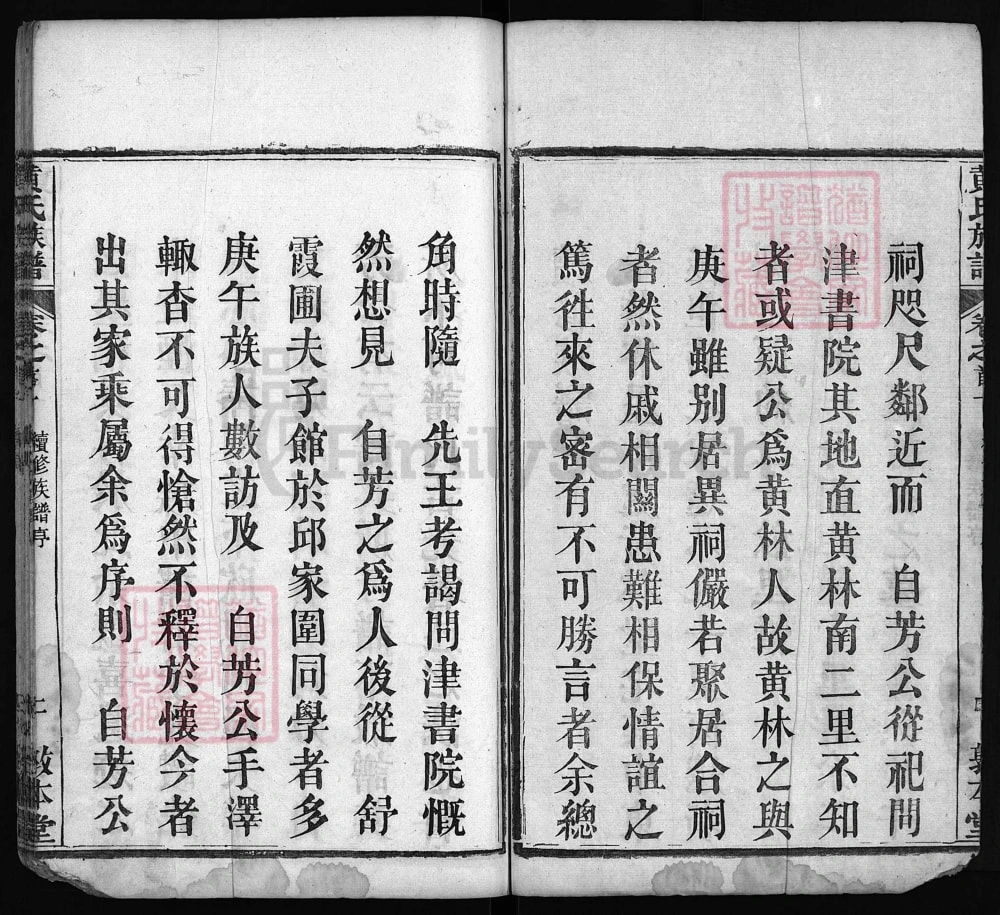 祠咫尺鄰近而　自芳公從祀問
津書院其地直黃林南二里不知
者或疑公爲黃林人故黃林之與
庚午雖別居異祠儼若聚居合祠
者然休戚相關患難相保情誼之
篤徃來之密有不可勝言者余總
角時隨　先王考謁問津書院慨
然想見　自芳之爲人後從　舒
霞圃夫子館於邱家圍同學者多
庚午族人數訪及　自芳公手澤
輙杳不可得愴然不釋於懷今者
出其家乘屬余爲序則　自芳公
黃氏族譜
卷之首
續修族譜序
敦本堂
FamilySearch